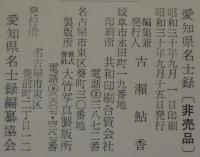 愛知県名士録〔非売品〕
昭和三十年九月 一 日印刷
昭和三十年九月十五日発行
編集兼
発行人 古瀬鮎香
岐阜市永田町一九番地
印刷所 共和印刷合資会社
電話②三八七二番
名古屋市東区葵町三〇番地
製版所 株式会社 大竹写真製版所
電話⑨二〇七・四六六番
名古屋市東区
発行所 豊前町二丁目一二
愛知県名士録編纂協会